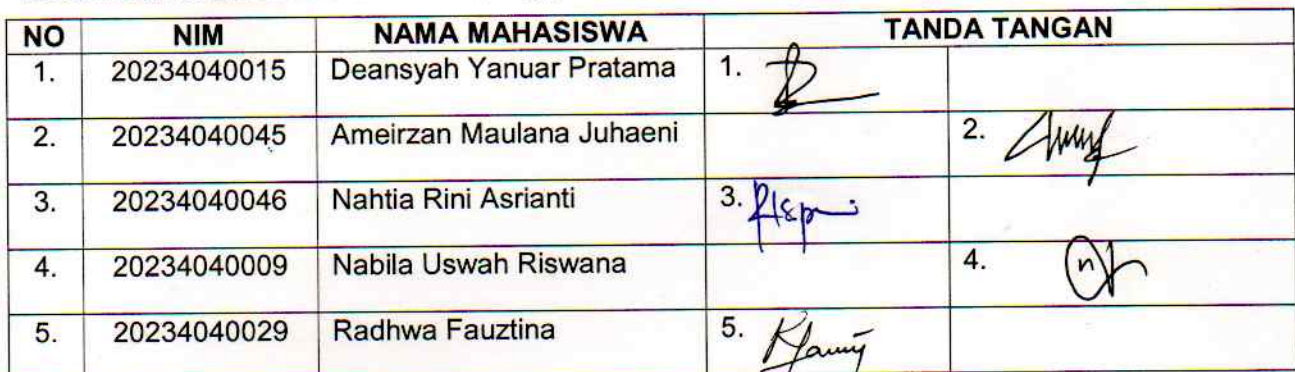 NO NIM NAMA MAHASISWA TANDA TANGAN
1. 20234040015 Deansyah Yanuar Pratama 1.
2. 20234040045 Ameirzan Maulana Juhaeni 2.
3. 20234040046 Nahtia Rini Asrianti 3.
4. 20234040009 Nabila Uswah Riswana 4.
5. 20234040029 Radhwa Fauztina 5.